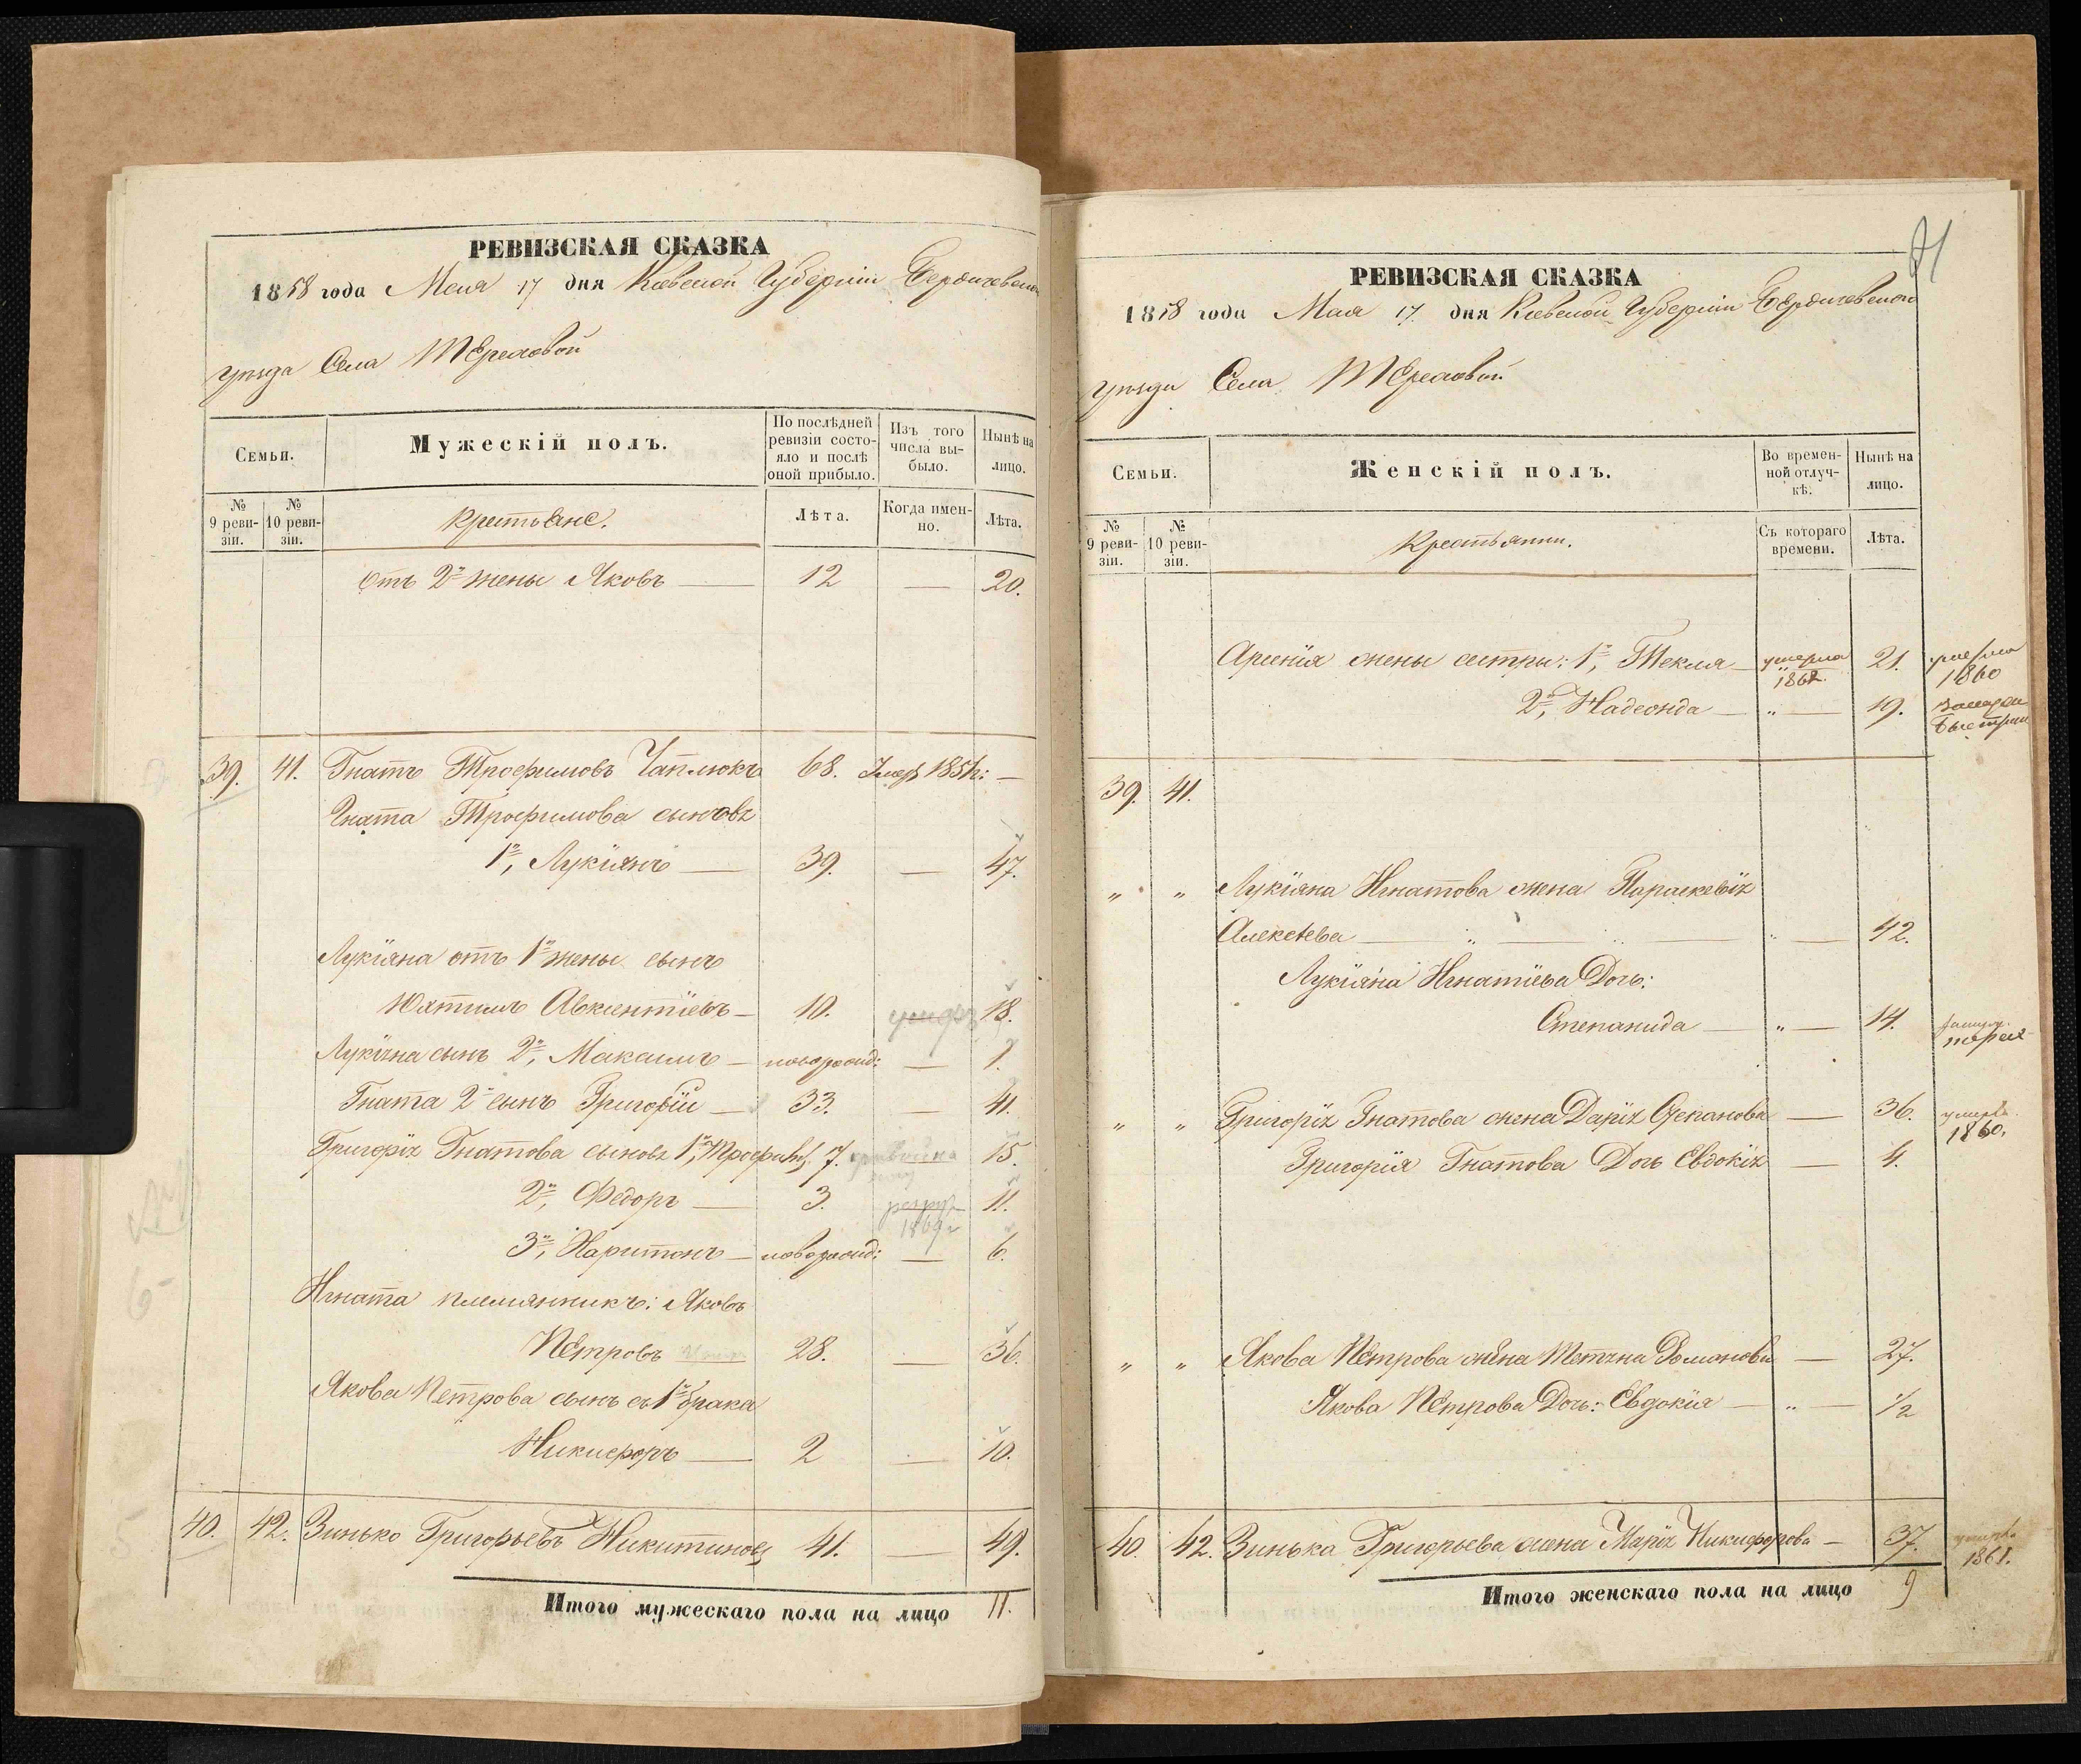 РЕВИЗСКАЯ СКАЗКА
1858 года Мая 17 дня Кіевской Губерніи Бердичевскаго
уѣзда Села Терсаовой
Семьи.
Мужескій полъ.
По послѣдней ревизіи состояло и послѣ оной прибыло.
Изъ того числа выбыло.
Нынѣ на лицо.
№ 9 ревизіи.
№ 10 ревизіи.
Крестьяне.
Лѣта.
Когда именно.
Лѣта.
отъ 2й жены Яковъ — 12 — 20.
39. 41. Гнатъ Трофимовъ Чаплюкъ 68. Умеръ —
Гната Трофимова сыновъ
1й, Лукіянъ — 39. — 47.
Лукіяна отъ 1й жены сынъ
Авксентіевъ — 10. умеръ 18.
Лукіяна сынъ 2й, Максимъ — новорожд: — 1.
Гната 2й сынъ Григорій — 33. — 41.
Григорія Гнатова сыновъ 1й, Трофимъ 7. — 15.
2й, Федоръ — 3. рекрут 1869 г 11.
3й, Харитонъ — новорожд: — 6.
Игната племянникъ: Яковъ
Петровъ 28. — 36.
Якова Петрова сынъ съ 1го брака
Никифоръ — 2 — 10.
40. 42. Зинько Григорьевъ Никитинов 41. — 49.
Итого мужескаго пола на лицо 11.
РЕВИЗСКАЯ СКАЗКА
1858 года Мая 17 дня Кіевской Губерніи Бердичевскаго
уѣзда Села
Семьи.
Женскій полъ.
Во временной отлучкѣ.
Нынѣ на лицо.
№ 9 ревизіи.
№ 10 ревизіи.
Крестьянки.
Съ котораго времени.
Лѣта.
Арсенія жены сестры: 1я, Текля — умерла 1862. 21. умерла 1860
2я, Надежда — „ — 19.
39. 41.
„ „ Лукіяна Игнатова жена Параскевія
Алексѣева — „ — 42.
Лукіяна Игнатіева Дочь:
Степанида — „ — 14.
„ „ Григорія Гнатова жена Дарія Степанова — 36. умерла 1860.
Григорія Гнатова Дочь Евдокія — 4.
„ „ Якова Петрова жена Тетяна Романова — 27.
Якова Петрова Дочь: Евдокія — „ — 1/2
40. 42. Зинька Григорьева жена Марія Никифорова — 37. умерла 1861.
Итого женскаго пола на лицо 9